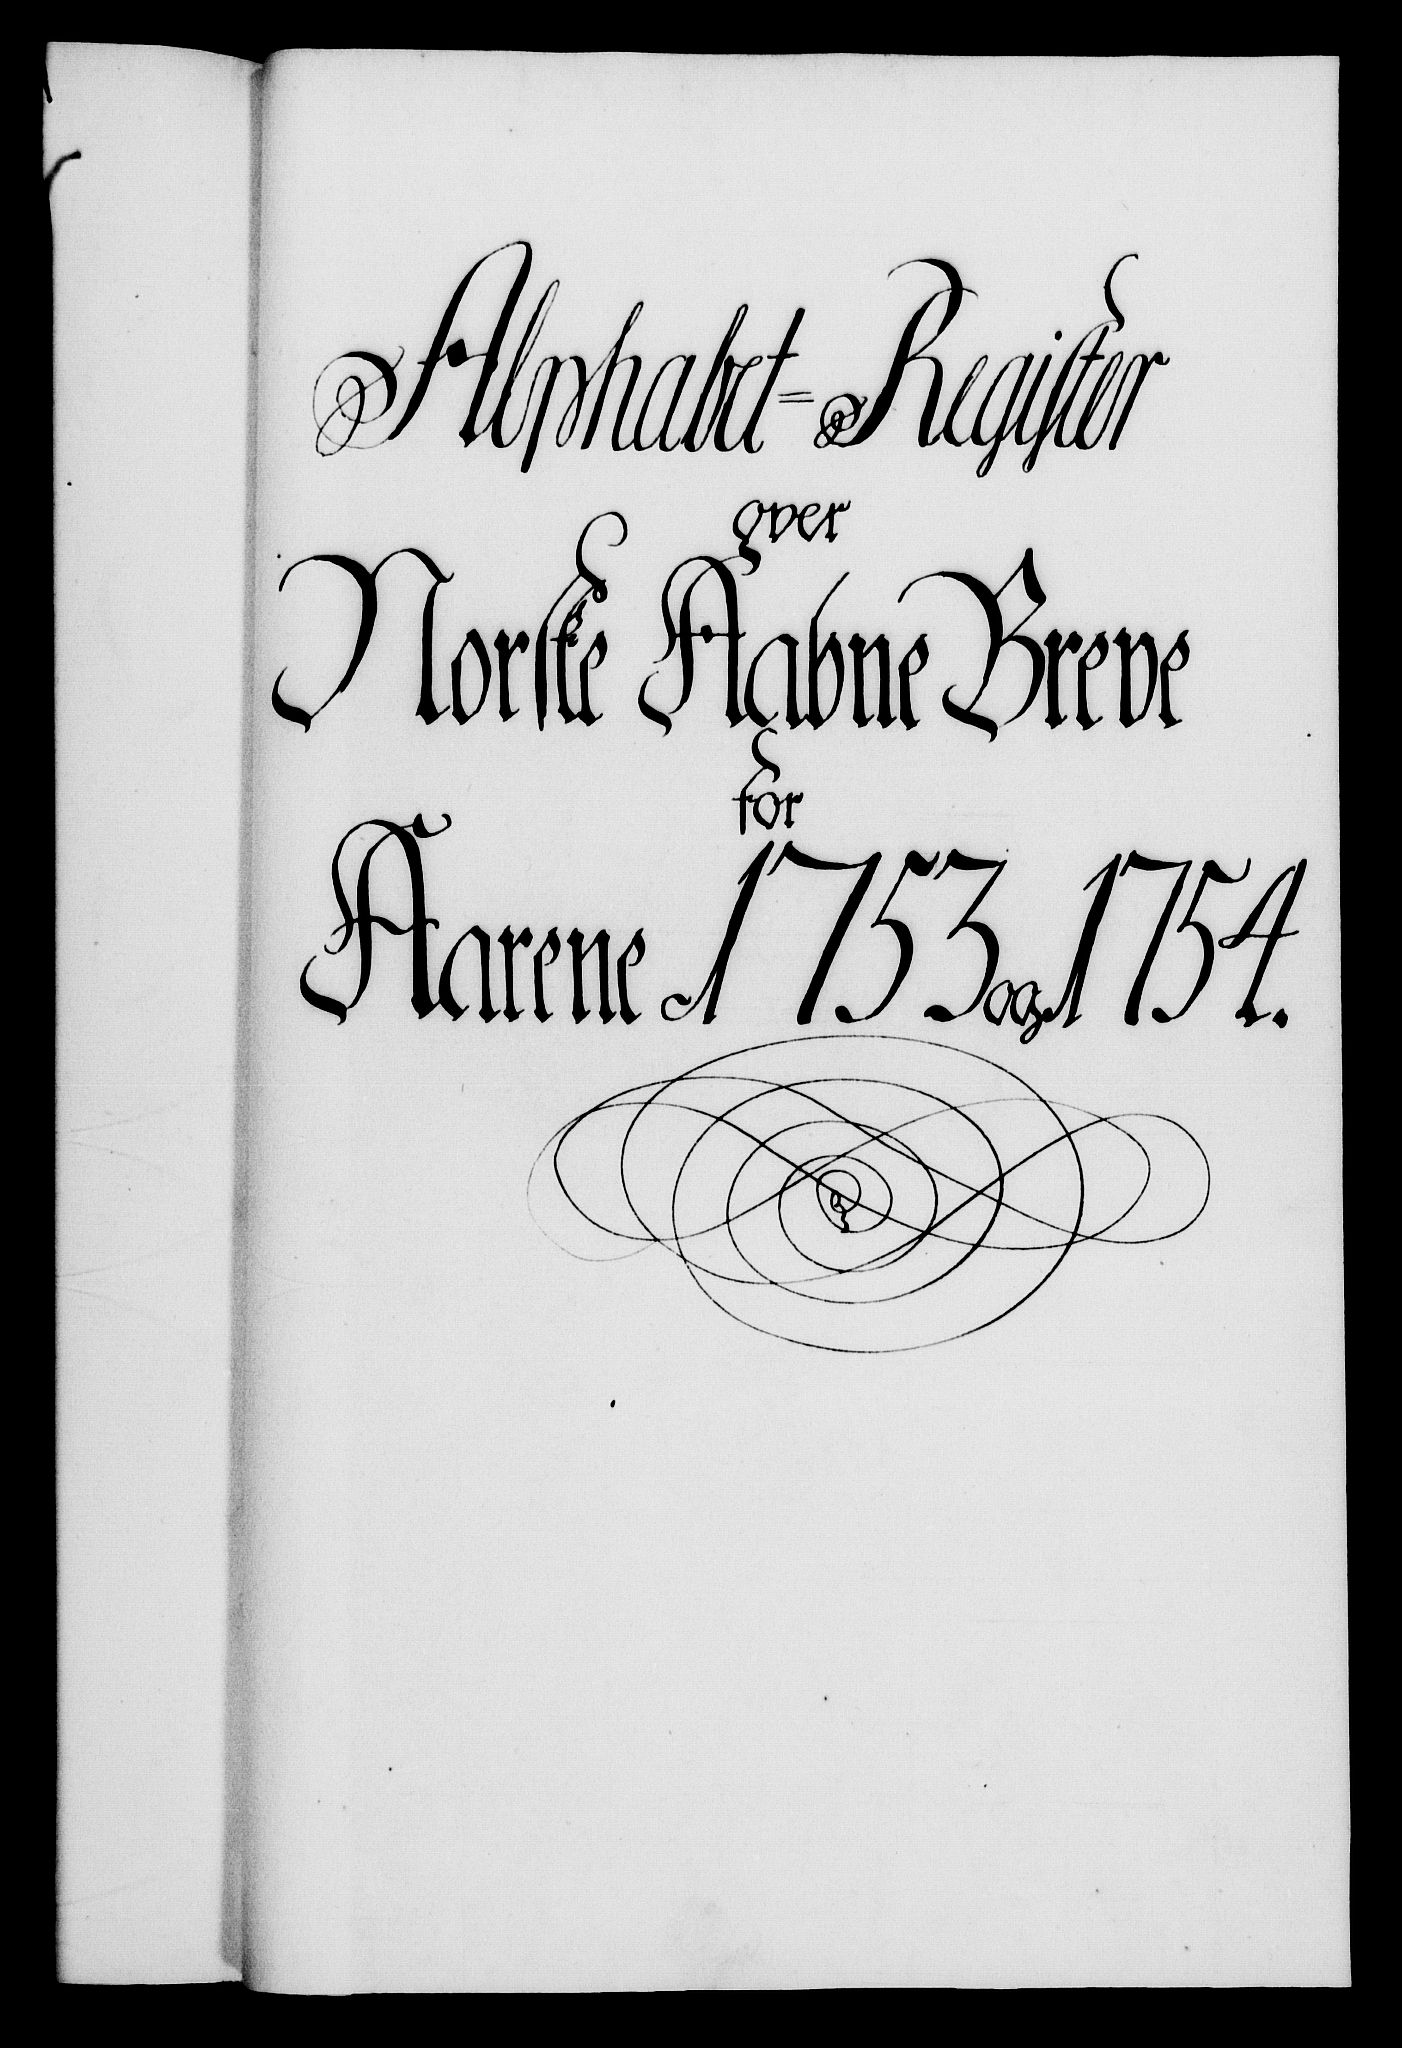 Alphabet=Register
over
Norske Aabne Breve
for
Aarene 1753 og 1754.